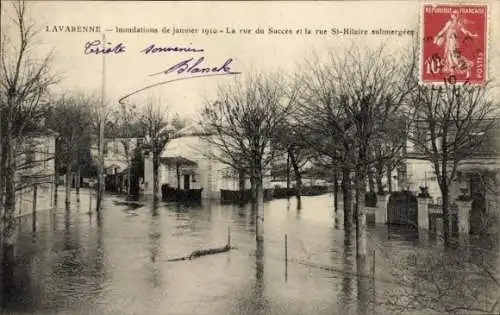 LAVARENNE — Inondations de janvier 1910 - La rue du Succès et la rue St-Hilaire submergées
REPUBLIQUE FRANÇAISE
10 POSTES
Triste souvenir
Blanck